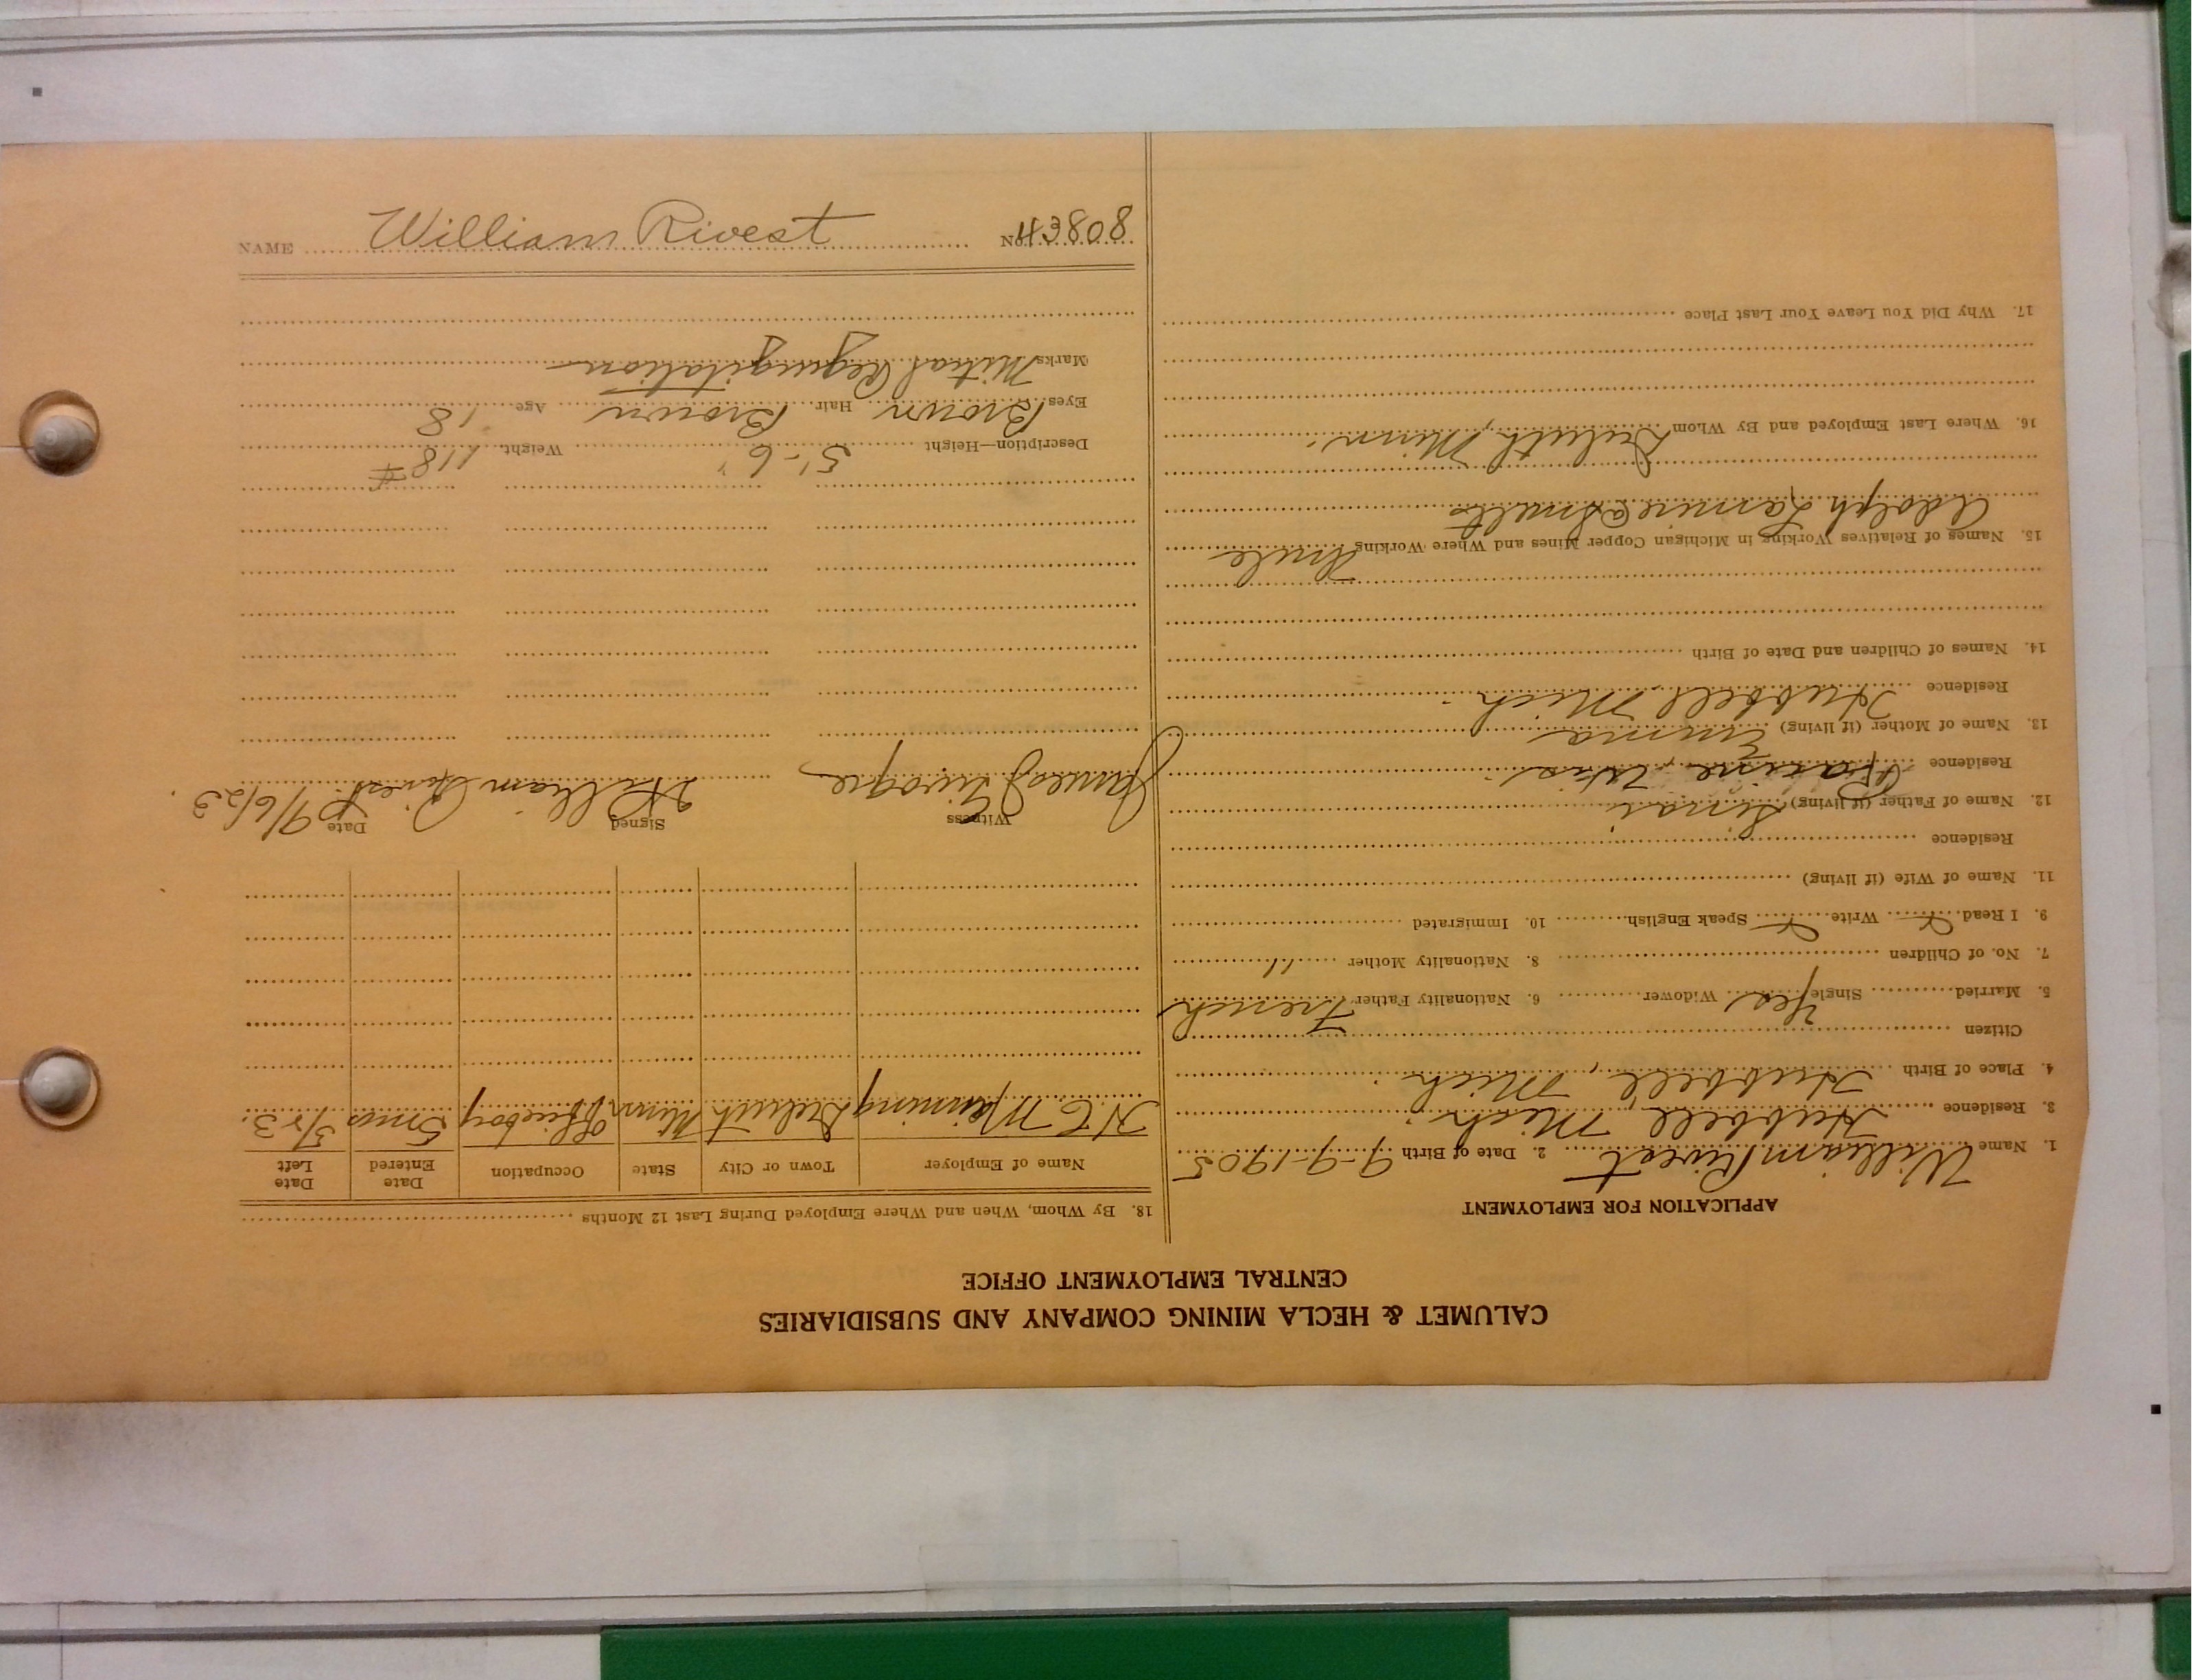 CALUMET & HECLA MINING COMPANY AND SUBSIDIARIES
CENTRAL EMPLOYMENT OFFICE
APPLICATION FOR EMPLOYMENT
1. Name William Rivest 2. Date of Birth 9-9-1905
3. Residence Hubbell Mich.
4. Place of Birth Hubbell, Mich.
Citizen
5. Married Single Yes Widower 6. Nationality Father French
7. No. of Children 8. Nationality Mother "
9. I Read Write Speak English 10. Immigrated
11. Name of Wife (if living)
Residence
12. Name of Father (if living)
Residence Racine, Wis.
13. Name of Mother (if living) Emma
Residence Hubbell Mich.
14. Names of Children and Date of Birth
15. Names of Relatives Working in Michigan Copper Mines and Where Working Uncle
Adolph @ Smelter
16. Where Last Employed and By Whom Duluth, Minn.
17. Why Did You Leave Your Last Place
18. By Whom, When and Where Employed During Last 12 Months
Name of Employer Town or City State Occupation Date Entered Date Left
Manning Duluth Minn Officeboy 5 mos
Witness Signed William Rivest Date 9/6/23.
James
Description—Height 5'-6" Weight 118#
Eyes Brown Hair Brown Age 18
Marks Mitral Regurgitation
NAME William Rivest No. 43808